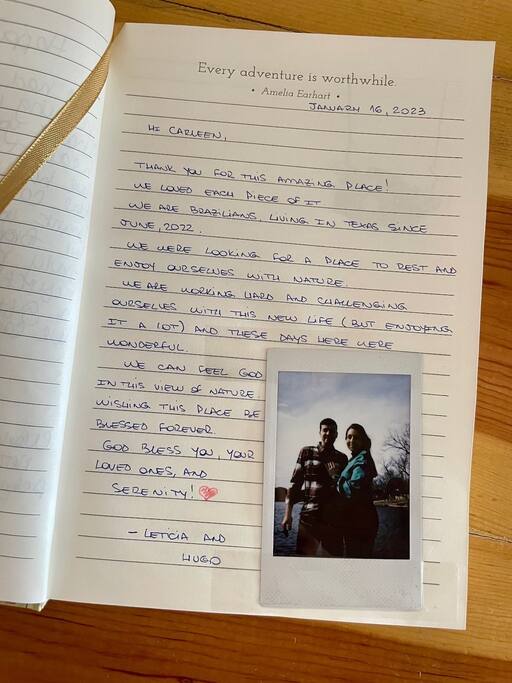 Every adventure is worthwhile.
• Amelia Earhart •
JANUARY 16, 2023
HI CARLEEN,
THANK YOU FOR THIS AMAZING PLACE!
WE LOVED EACH PIECE OF IT
WE ARE BRAZILIANS, LIVING IN TEXAS SINCE
JUNE, 2022.
WE WERE LOOKING FOR A PLACE TO REST AND
ENJOY OURSELVES WITH NATURE.
WE ARE WORKING HARD AND CHALLENGING
OURSELVES WITH THIS NEW LIFE (BUT ENJOYING
IT A LOT) AND THESE DAYS HERE WERE
WONDERFUL.
WE CAN FEEL GOD
IN THIS VIEW OF NATURE.
WISHING THIS PLACE BE
BLESSED FOREVER.
GOD BLESS YOU, YOUR
LOVED ONES, AND
SERENITY!
- LETÍCIA AND
HUGO